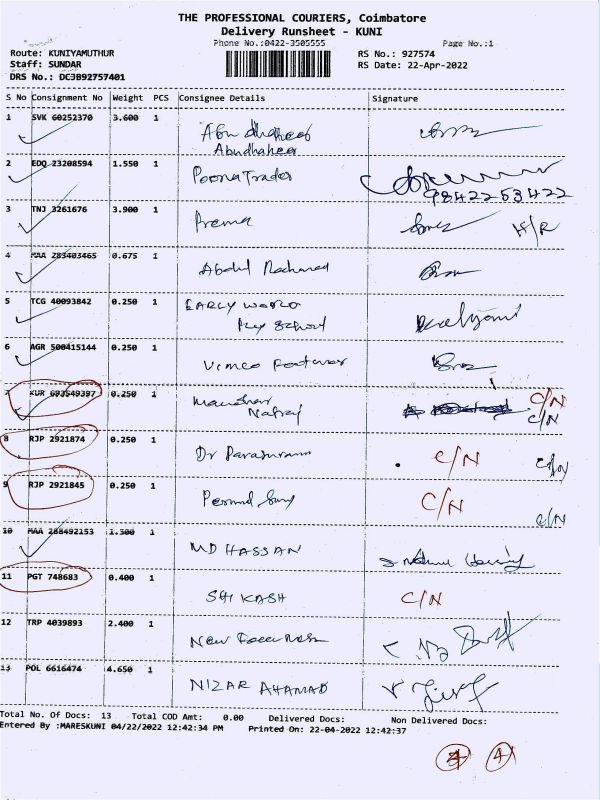 THE PROFESSIONAL COURIERS, Coimbatore
Delivery Runsheet - KUNI
Phone No.:0422-3505555 Page No.:1
Route: KUNIYAMUTHUR RS No.: 927574
Staff: SUNDAR RS Date: 22-Apr-2022
DRS No.: DC3B92757401
S No Consignment No Weight PCS Consignee Details Signature
1 SVK 60252370 3.600 1
Abudhaheer
2 EDQ 23208594 1.550 1 Poona Trader
9842253422
3 TNJ 3261676 3.900 1 Prema H/R
4 MAA 283403465 0.675 1 Abdul
5 TCG 40093842 0.250 1 EARLY WORLD
Play School Kalyani
6 AGR 500415144 0.250 1
7 KUR 693549397 0.250 1 C/N
C/N
8 RJP 2921874 0.250 1 Dr Parasuram C/N C/N
9 RJP 2921845 0.250 1 C/N
C/N
10 MAA 288492153 1.300 1 MD HASSAN
11 PGT 748683 0.400 1 C/N
12 TRP 4039893 2.400 1 New
13 POL 6616474 4.650 1 NIZAR AHAMAD
Total No. Of Docs: 13 Total COD Amt: 0.00 Delivered Docs: Non Delivered Docs:
Entered By :MARESKUNI 04/22/2022 12:42:34 PM Printed On: 22-04-2022 12:42:37
4